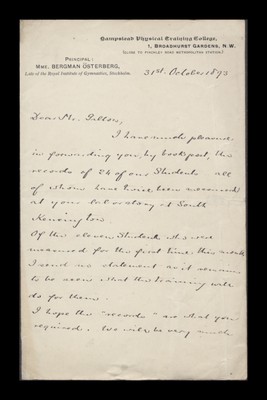 Hampstead Physical Training College,
1, BROADHURST GARDENS, N.W.
(CLOSE TO FINCHLEY ROAD METROPOLITAN STATION)
PRINCIPAL:
MME. BERGMAN ÖSTERBERG,
Late of the Royal Institute of Gymnastics, Stockholm.
31st. October 1893
Dear Mr.
I have much pleasure
in forwarding you, by book post, the
records of 24 of our Students all
of whom have twice been measured
at your laboratory at South
Kensington
Of the eleven Students who were
measured for the first time this week
I send no statement as it remains
to be seen what the training will
do for them.
I hope the "records" are what you
required. We will be very much